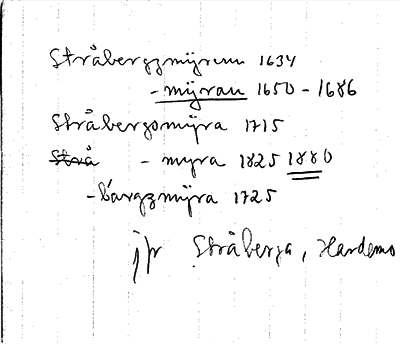 Stråbergzmÿrenn 1634
- mÿran 1650 - 1686
Stråbergsmÿra 1715
Strå - myra 1825 1880
- bargzmÿra 1725
jfr Stråberga, Hardemo